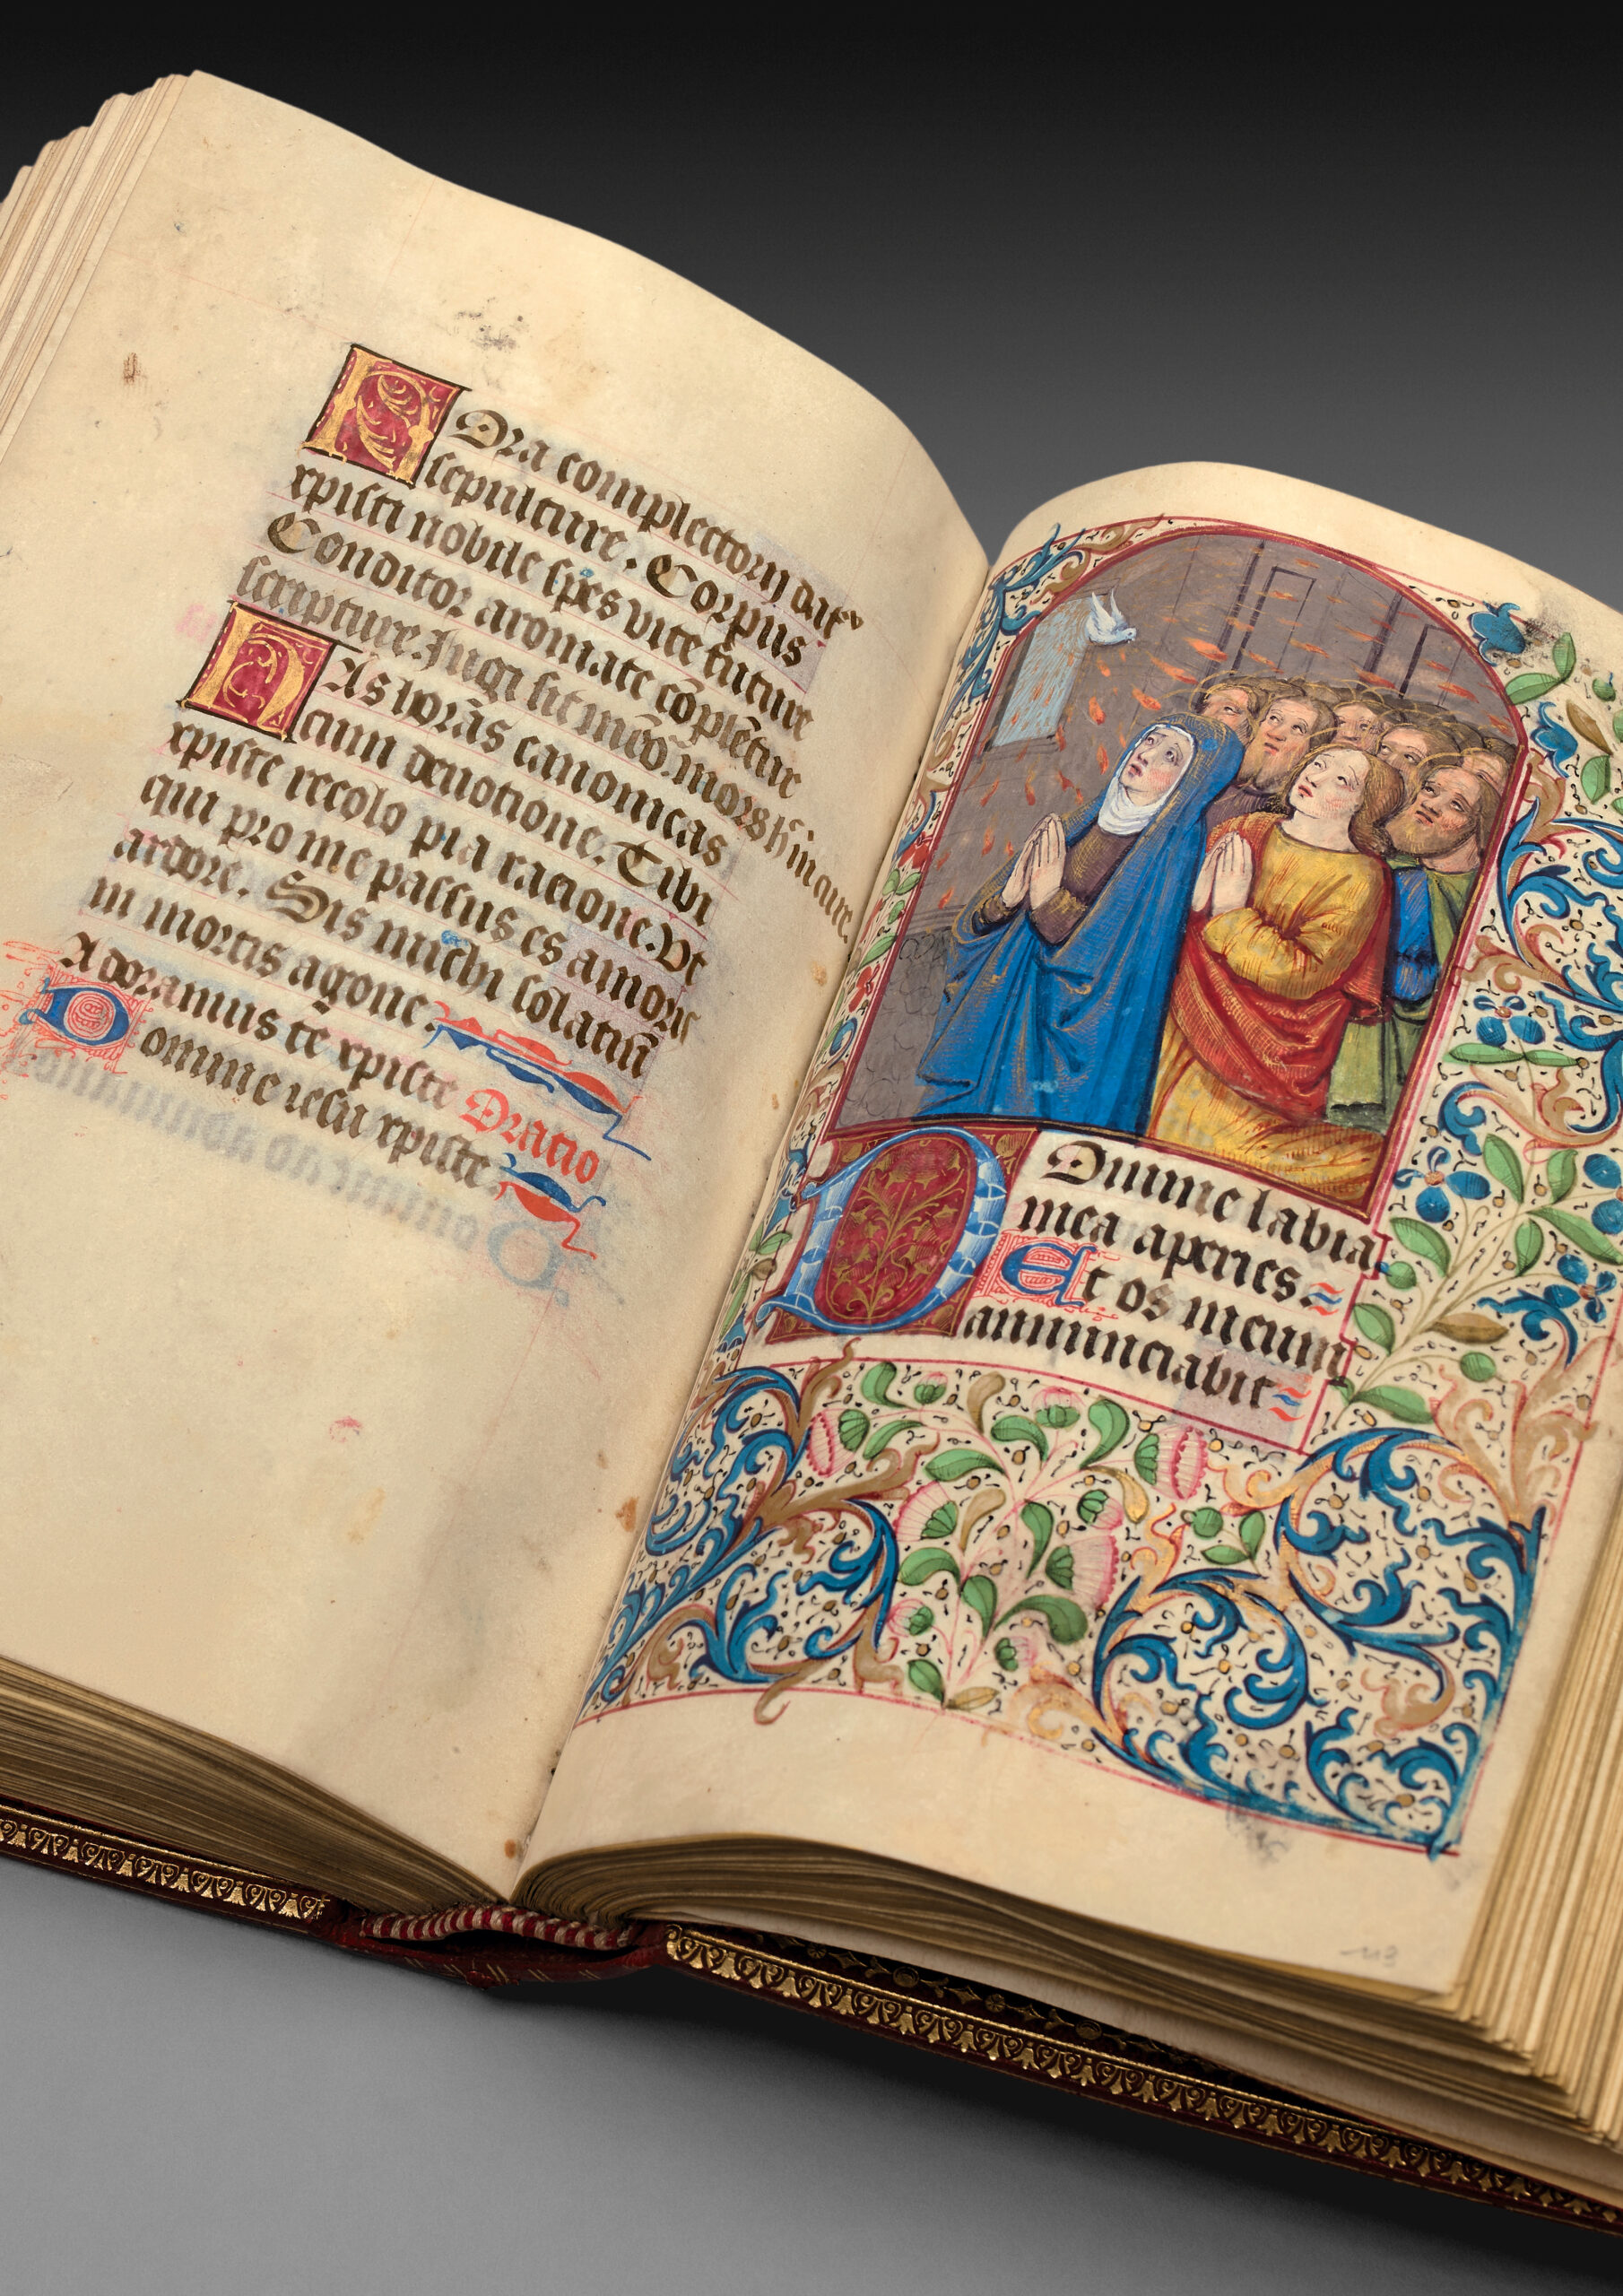 HOra complectorii datr
sepulture. Corpus
xpisti nobile spes vite future
Conditor aromate cōplētur
scripture. Jugi sit mēo mors h̄ in cure.
HAs horās canonicas
cum devotione. Tibi
xpiste recolo pia racione. Vt
qui pro me passus es amoris
ardore. Sis michi solatiū
in mortis agone.
Adoramus te xpiste Oratio
Domine iesu xpiste.
DOmine labia
mea aperies.
Et os meum
annunciabit
113